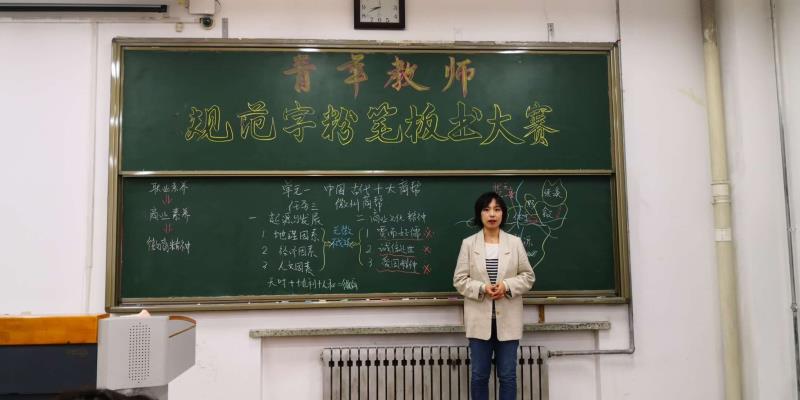 青年教师
规范字粉笔板书大赛
职业素养
商业素养
单元一 中国古代十大商帮
任务三 徽州商帮
一 起源与发展
1 地理因素
2 经济因素
3 人文因素
天时+地利+人和=徽商
无徽
二 商业文化精神
1 贾而好儒
2 诚信处世
3 爱国精神